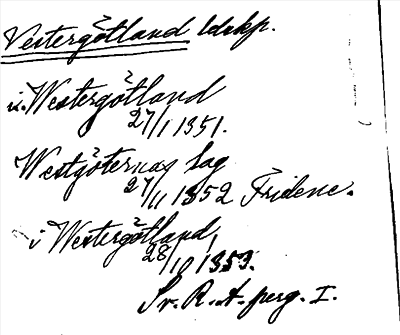 Vestergötland ldskp.
i Westergötland
27/1 1351.
Westgöternas lag
27/11 1352 Fridene.
i Westergötland
28/10 1353.
Sv. R. A. perg. I.